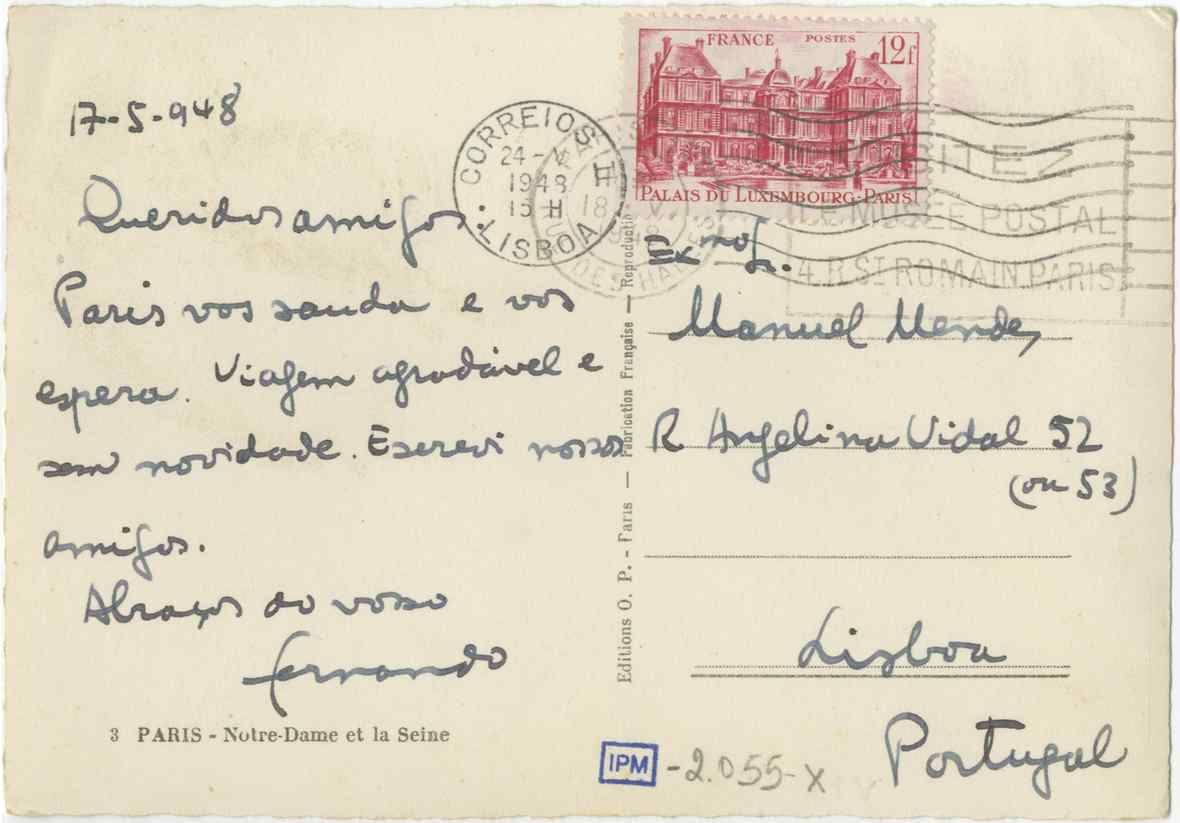 17-5-948
Queridos amigos.
Paris vos sauda e vos
espera. Viagem agradável e
sem novidade. Escrevi nossos
amigos.
Abraços do vosso
Fernando
3 PARIS - Notre-Dame et la Seine
Editions O. P. - Paris — Fabrication Française — Reproductio
FRANCE POSTES 12f
PALAIS DU LUXEMBOURG-PARIS
CORREIOS
24-V
1948
15 H
LISBOA
18
LE MUSÉE POSTAL
4 R ST ROMAIN PARIS
Exmo Sr.
Manuel Mendes
R Angelina Vidal 52
(ou 53)
Lisboa
Portugal
IPM -2.055-X